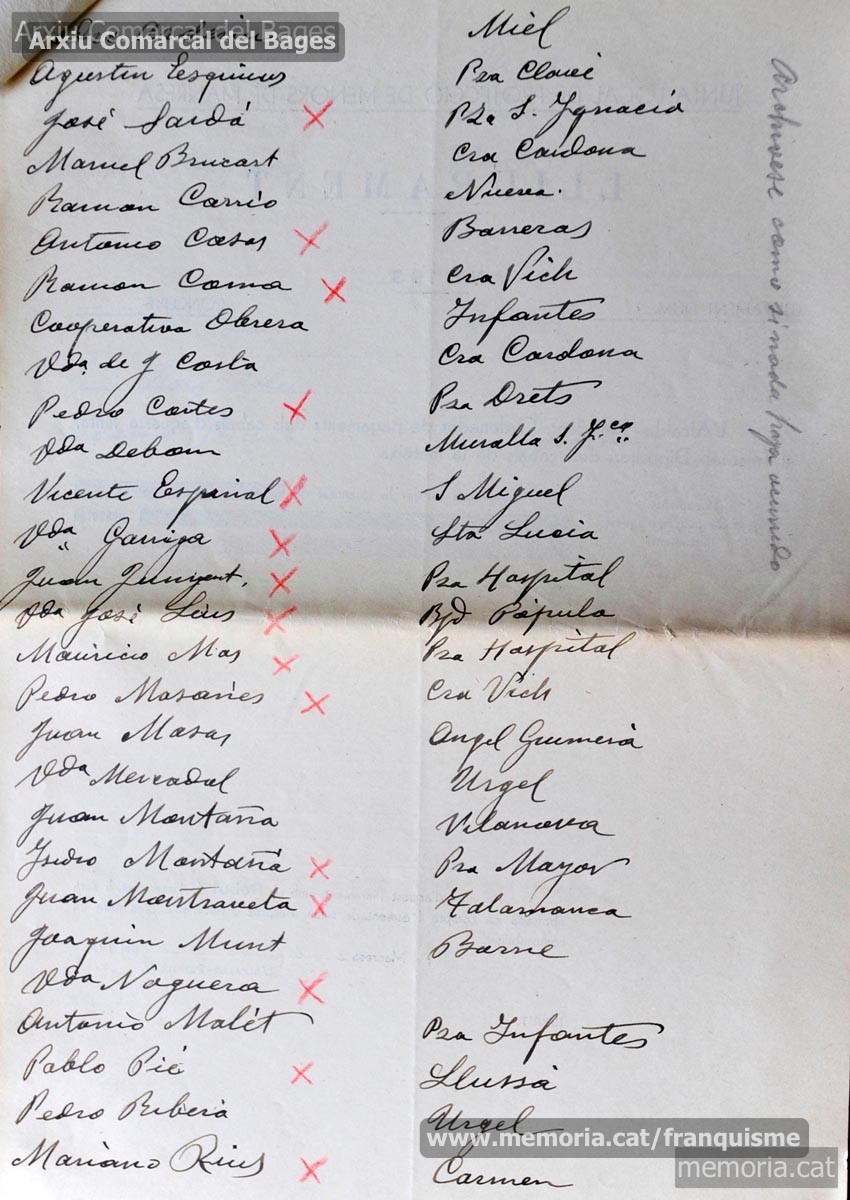 Arxiu Comarcal del Bages
Arxiu Comarcal del Bages
Miel
Agustin Esquius Pza Clavé
José Sardá Pza S. Ignacio
Manuel Brucart Cra Cardona
Ramon Carrió Nueva.
Antonio Casas Barreras
Ramon Coma Cra Vich
Cooperativa Obrera Infantes
Vda. de J Costa Cra Cardona
Pedro Cortes Pza Drets
Vda Muralla S. Fco.
Vicente Español S Miguel
Vda Garriga Sta Lucia
Juan Junyent. Pza Hospital
Vda José Lluis Bjd Pópulo
Mauricio Mas Pza Hospital
Pedro Masanés Cra Vich
Juan Masas Angel Guimerá
Vda Mercadal Urgel
Juan Montaña Vilanova
Isidro Montañá Pza Mayor
Juan Montraveta Talamanca
Joaquin Munt Borne
Vda Noguera
Antonio Malét Pza Infantes
Pablo Pié Llussá
Pedro Ribera Urgel
Mariano Rius Carmen
Archivese como si nada haya ocurrido
JUNTA LOCAL DE PROTECCIÓ DE MENORS DE MANRESA
LLIURAMENT
www.memoria.cat/franquisme
memoria.cat